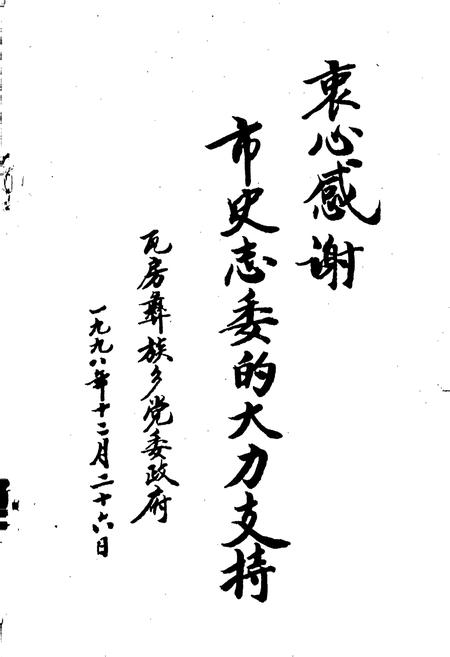 衷心感谢
市史志委的大力支持
瓦房彝族乡党委政府
一九九八年十二月二十六日